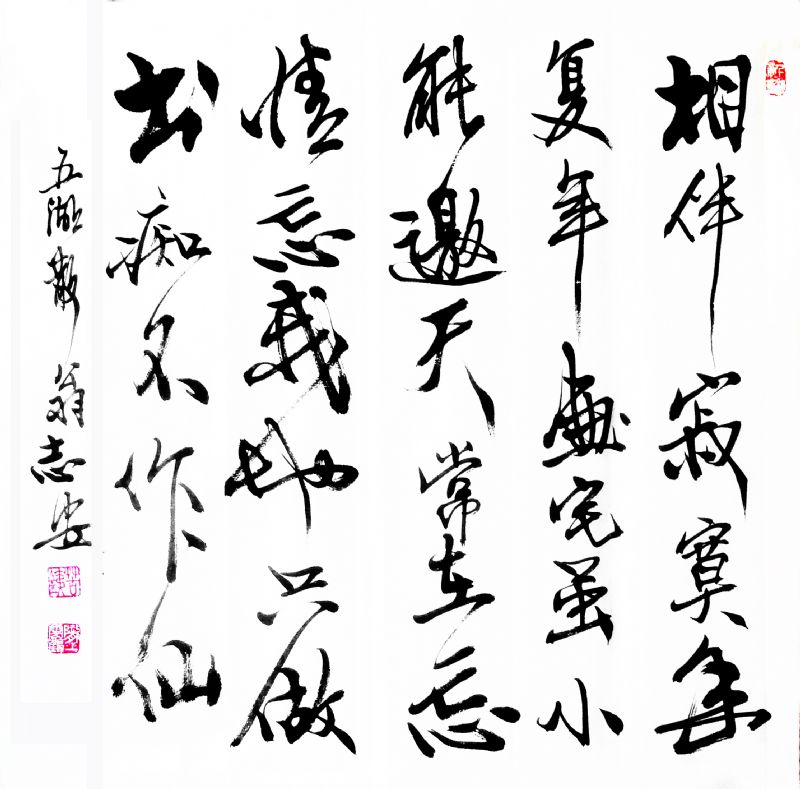 相伴寂寞年
复年宅虽小
能邀天常在忘
情忘我地只做
书痴不作仙
五湖散翁志